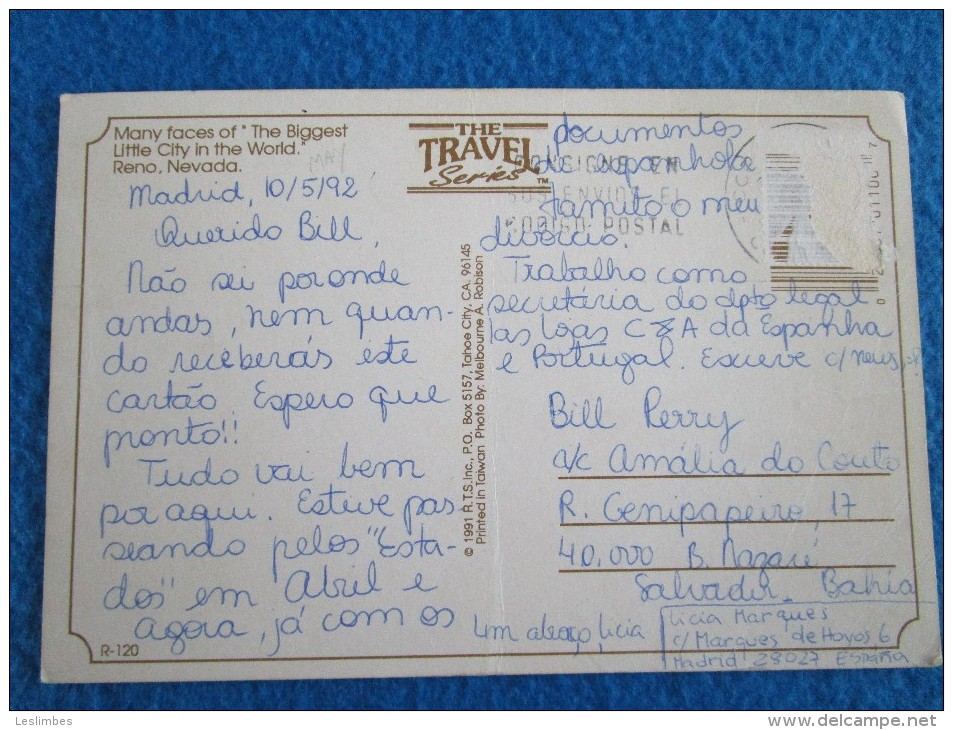 Many faces of "The Biggest
Little City in the World."
Reno, Nevada.
THE
TRAVEL
Series™
Madrid, 10/5/92
MAY
Querido Bill,
Não sei por onde
andas, nem quan-
do receberás este
cartão. Espero que
pronto!!
Tudo vai bem
por aqui. Estive pas-
seando pelos "Esta-
dos" em Abril e
agora, já com os
documentos
espanhola
tramito o meu
divórcio.
Trabalho como
secretária do dpto legal
das Lojas C&A da Espanha
e Portugal. Escreve c/news,
Um abraço, Licia
CONSIGNE EN
SUS ENVIOS EL
CODIGO POSTAL
© 1991 R.T.S. Inc., P.O. Box 5157, Tahoe City, CA. 96145
Printed in Taiwan Photo By: Melbourne A. Robison
Bill Perry
a/c Amália do Couto
R. Genipapeiro, 17
40.000 B. Nazaré
Salvador - Bahia
Licia Marques
c/ Marques de Hoyos 6
Madrid 28027 ESPAÑA
R-120
Leslimbes
www.delcampe.net